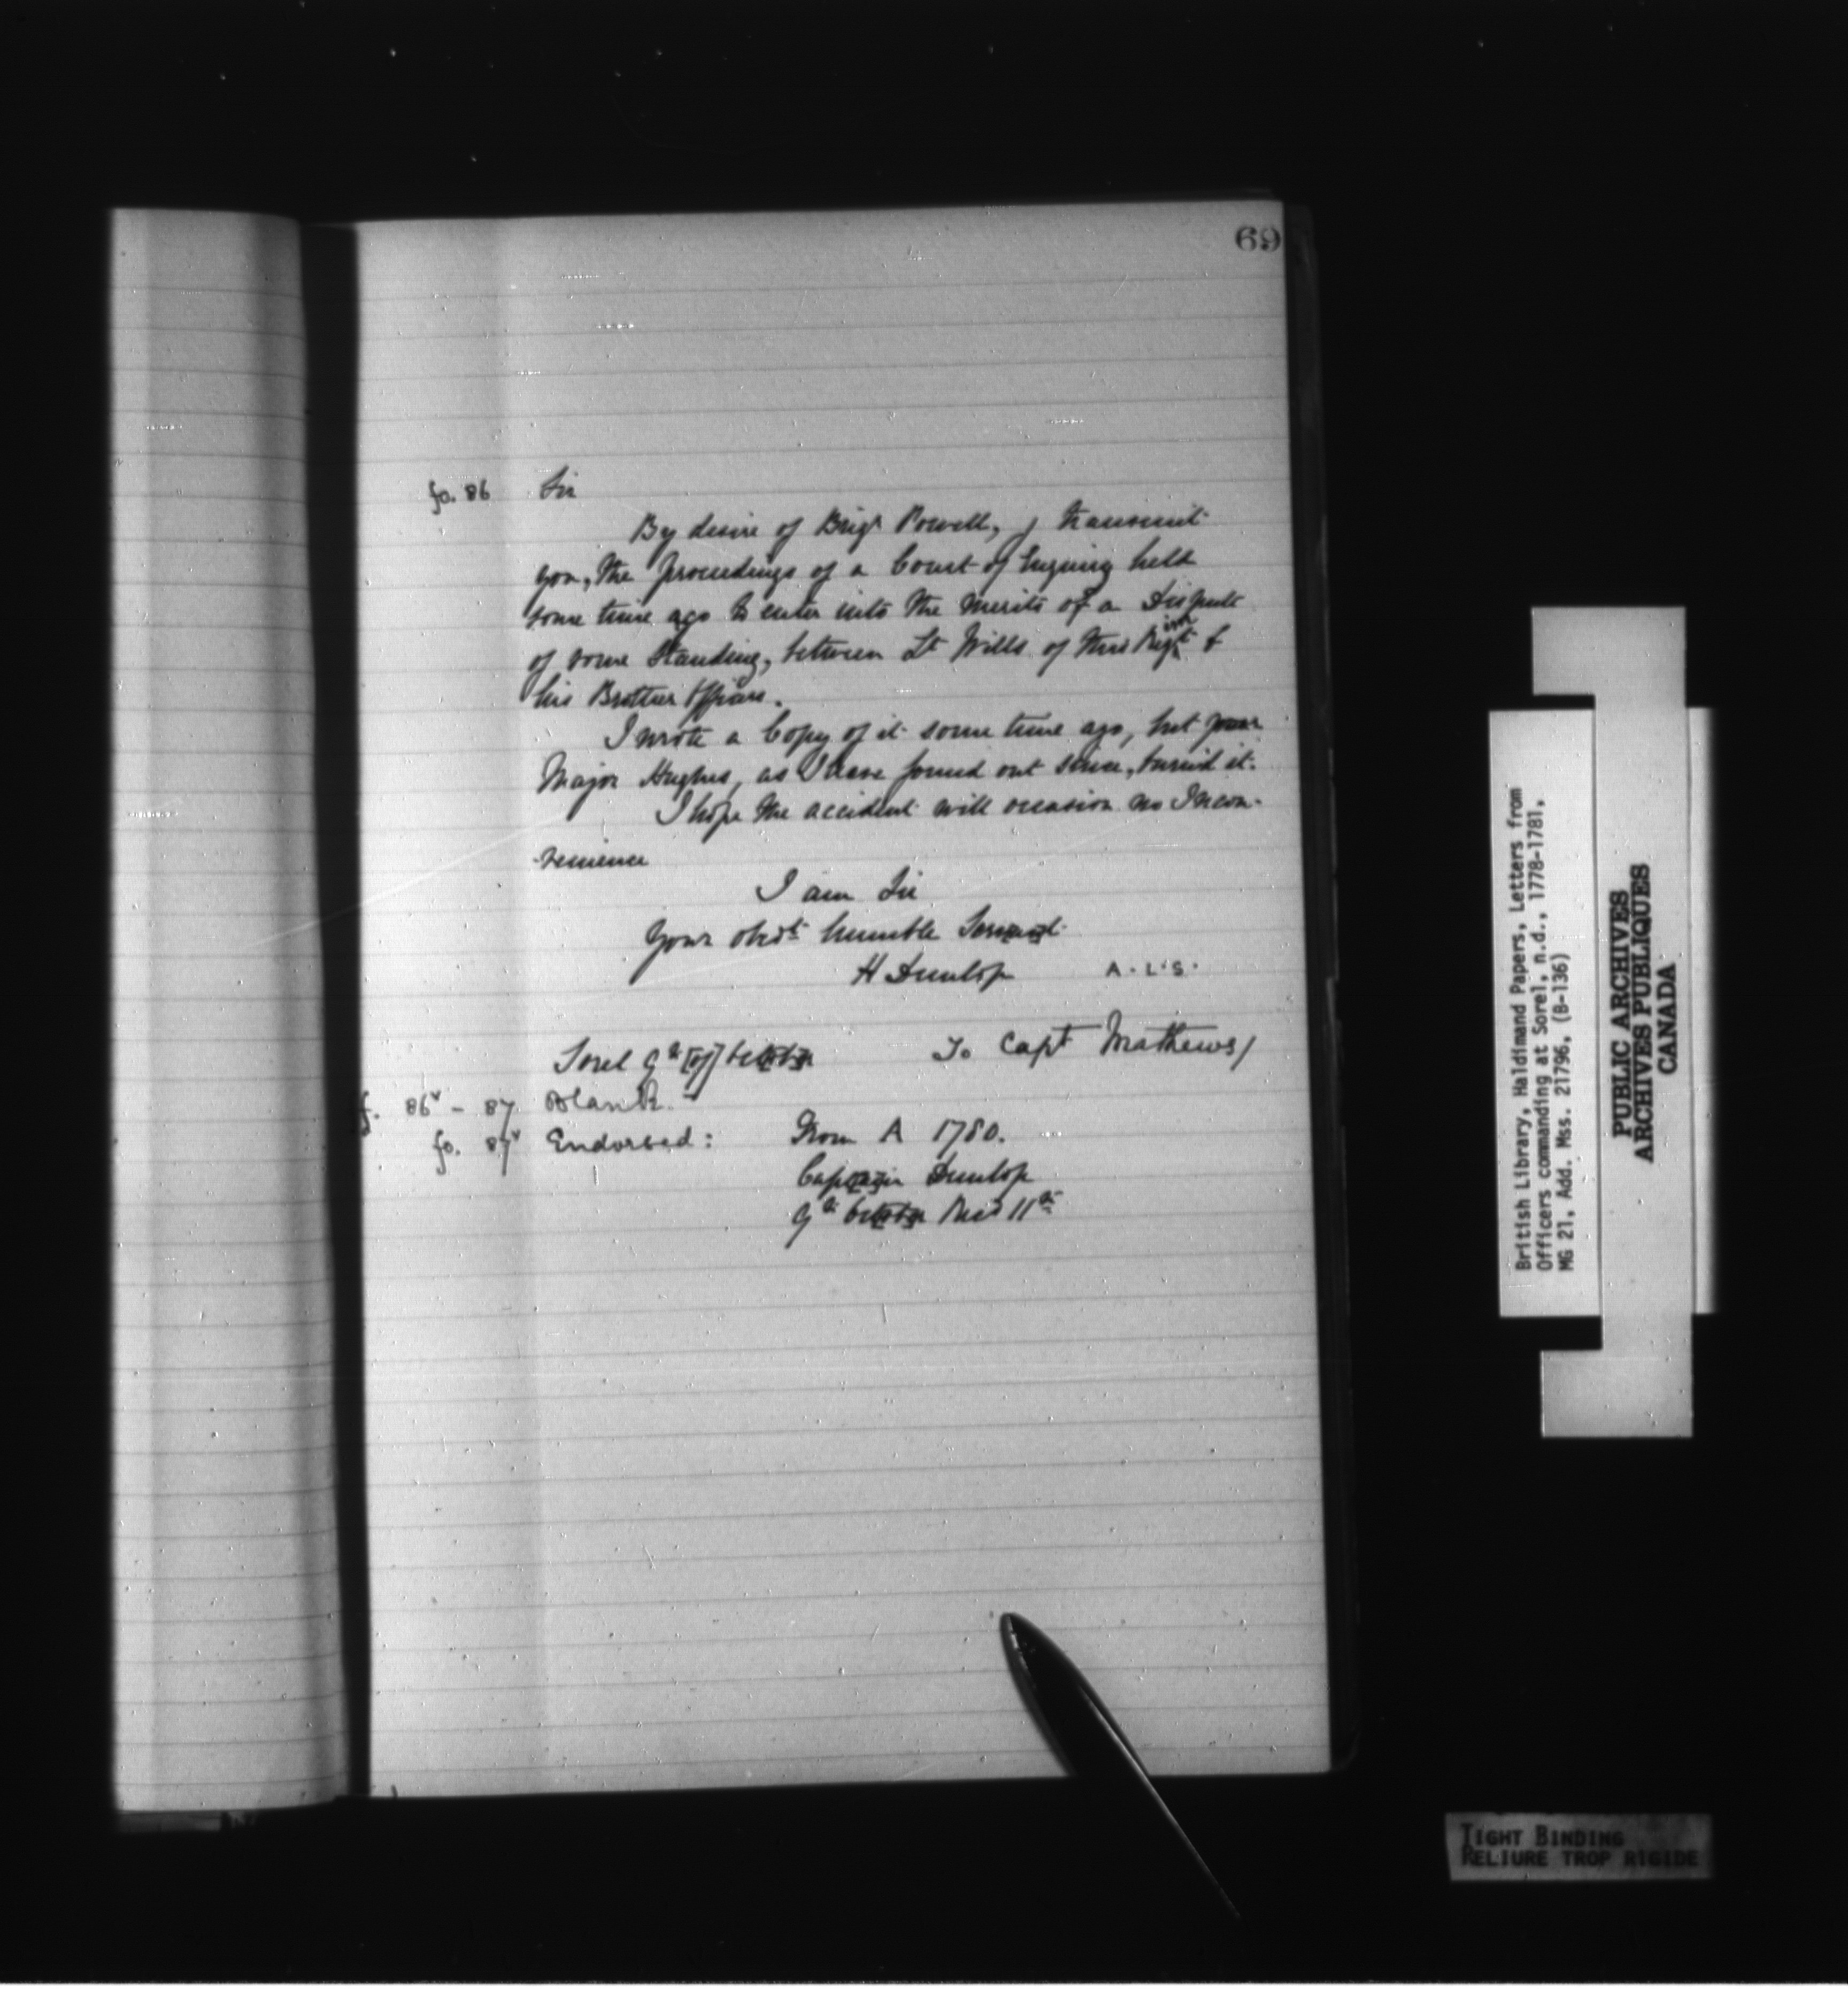 69
fo. 86 Sir
By desire of Brigr Powell, I transmit
you, the proceedings of a Court of Enquiry held
some time ago to enter into the Merits of a Dispute
of some Standing, between Lt Wills of this Regimt &
his Brother Officers.
I wrote a Copy of it some time ago, but poor
Major Hughes, as I have found out since, burnd it.
I hope the accident will occasion no Incon-
-venience
I am Sir
Your obedt humble Servant
H Dunlop A.L.S.
Sorel 9th [of] October To Capt Mathews/
f. 86v - 87 Blank.
fo. 87v Endorsed: From A 1780.
Captain Dunlop
9th October Recd 11th
British Library, Haldimand Papers, Letters from
Officers commanding at Sorel, n.d., 1778-1781,
MG 21, Add. Mss. 21796, (B-136)
PUBLIC ARCHIVES
ARCHIVES PUBLIQUES
CANADA
TIGHT BINDING
RELIURE TROP RIGIDE